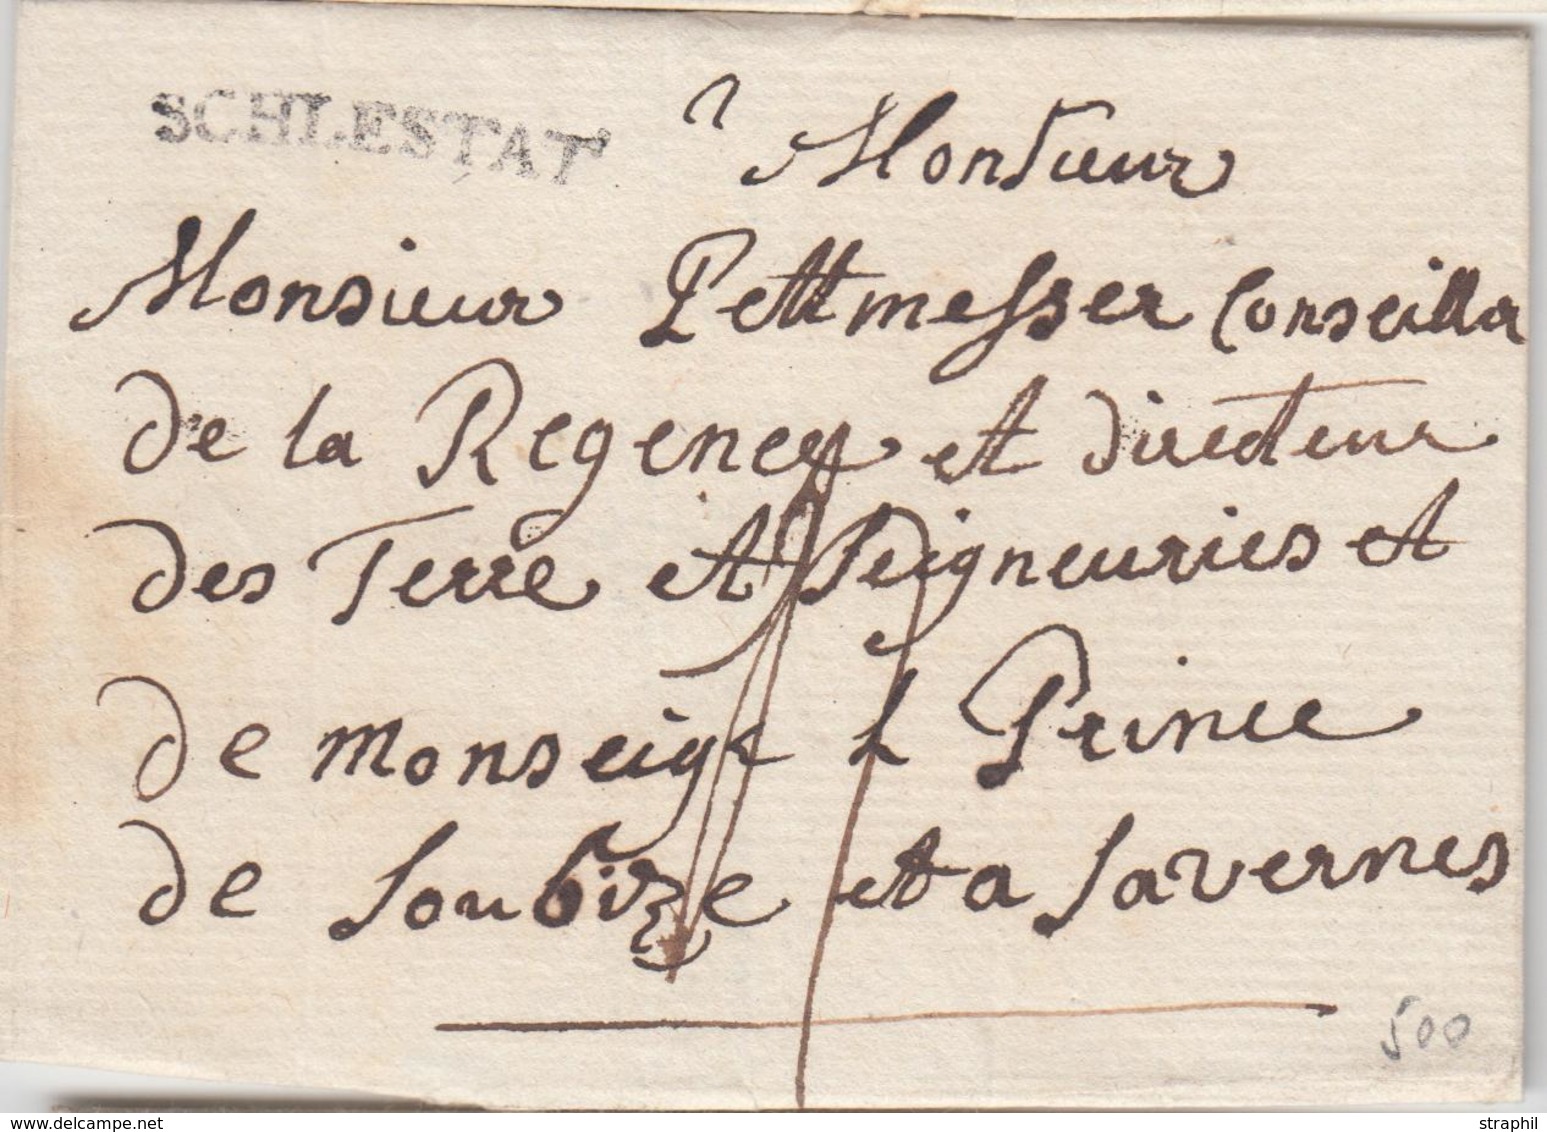 SCHLESTAT
a Monsieur
Monsieur Pettmesser Conseiller
de la Regence et directeur
des Terre et Seigneuries et
de Monseigr le Prince
de Soubize et a Savernes
500
www.delcampe.net
straphil